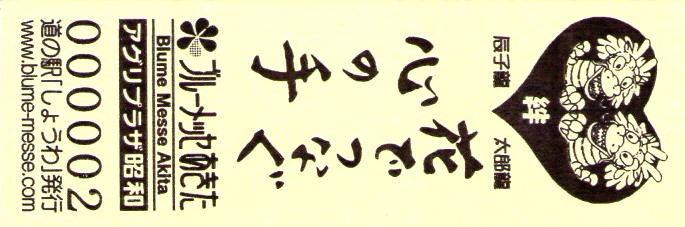 辰子龍
太郎龍
絆
花でつなぐ
心の手
ブルーメッセあきた
Blume Messe Akita
アグリプラザ昭和
000002
道の駅「しょうわ」発行
www.blume-messe.com